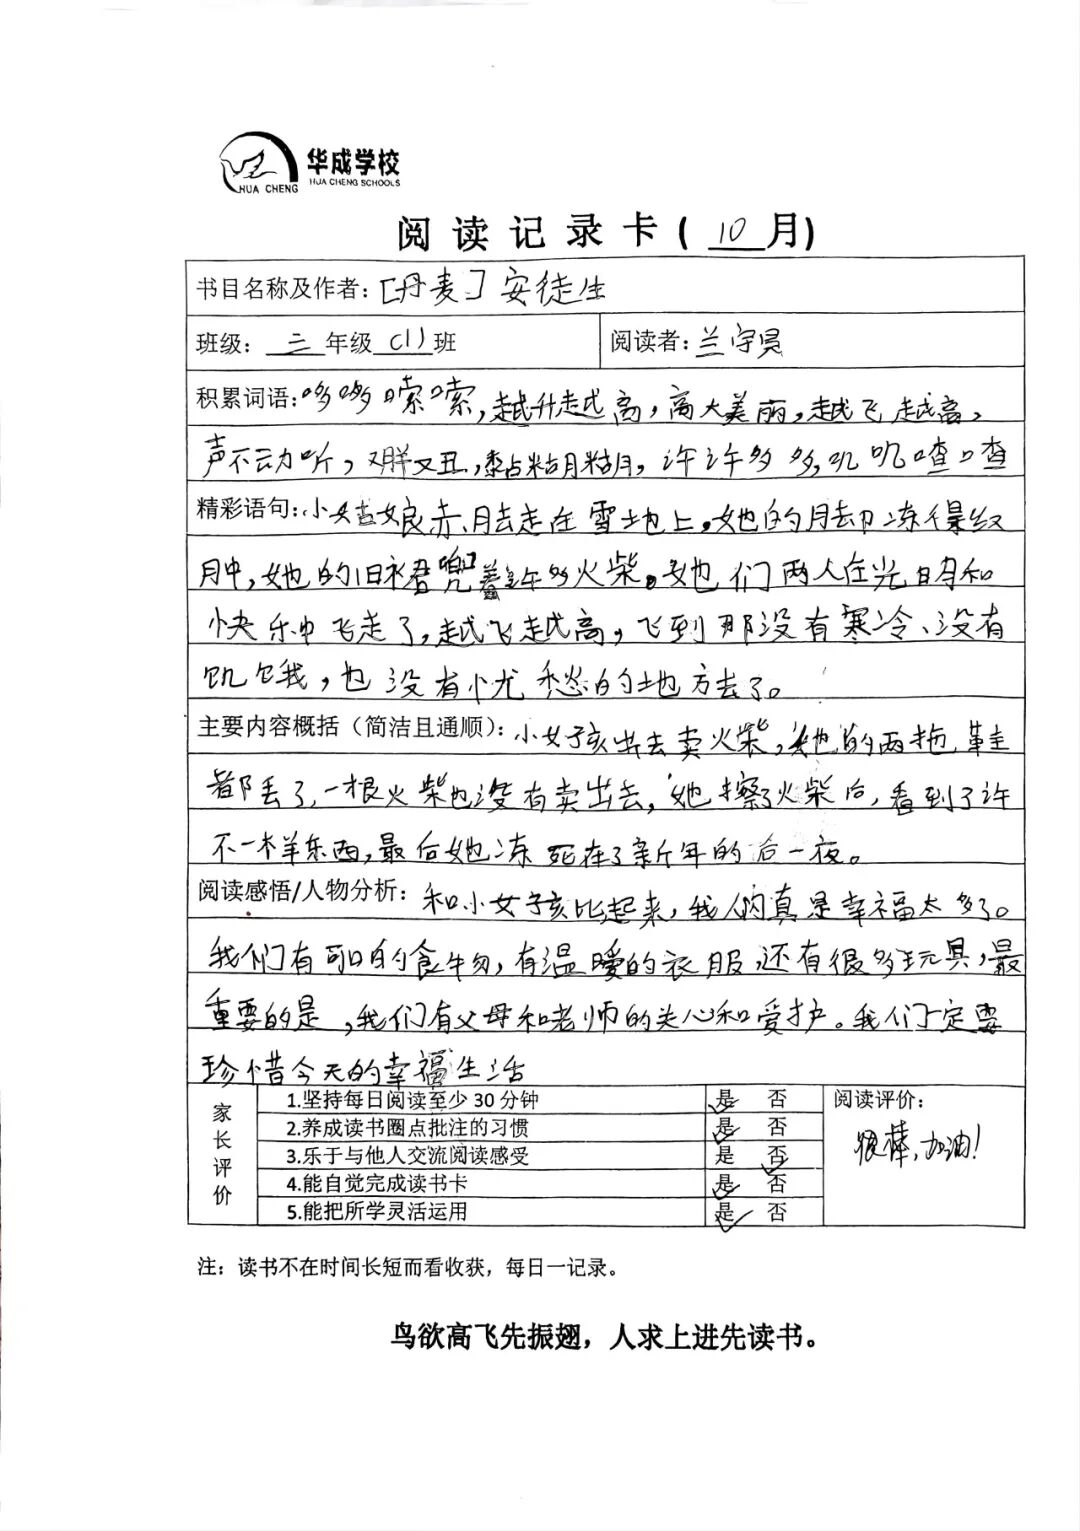 华成学校
HUA CHENG SCHOOLS
HUA CHENG
阅读记录卡(10月)
书目名称及作者：[丹麦]安徒生
班级：三年级(1)班 阅读者：兰宇昊
积累词语：哆哆嗦嗦，越升越高，高大美丽，越飞越高，
声不动听，又胖又丑，黏黏糊糊，许许多多，叽叽喳喳
精彩语句：小姑娘赤脚走在雪地上。她的脚冻得红
肿，她的旧裙兜着许多火柴。她们两人在光明和
快乐中飞走了，越飞越高，飞到那没有寒冷、没有
饥饿，也没有忧愁的地方去了。
主要内容概括（简洁且通顺）：小女孩出去卖火柴，她的两拖鞋
都丢了，一根火柴也没有卖出去，她擦了火柴后，看到了许
不一样东西，最后她冻死在了新年的后一夜。
阅读感悟/人物分析：和小女孩比起来，我们真是幸福太多了。
我们有可口的食物，有温暖的衣服，还有很多玩具，最
重要的是，我们有父母和老师的关心和爱护。我们一定要
珍惜今天的幸福生活
家长评价
1.坚持每日阅读至少30分钟 是 否
2.养成读书圈点批注的习惯 是 否
3.乐于与他人交流阅读感受 是 否
4.能自觉完成读书卡 是 否
5.能把所学灵活运用 是 否
阅读评价：
很棒，加油！
注：读书不在时间长短而看收获，每日一记录。
鸟欲高飞先振翅，人求上进先读书。